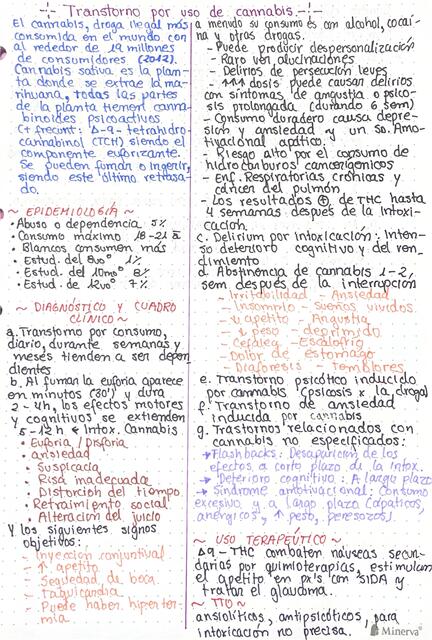 Transtorno por uso de cannabis.
El cannabis, droga ilegal más
consumida en el mundo con
al rededor de 19 millones
de consumidores (2012).
Cannabis sativa es la plan-
ta donde se extrae la ma-
rihuana, todas las partes
de la planta tienen canna-
binoides psicoactivos
(+ frecunt: Δ-9-tetrahidro-
cannabinol (TCH) siendo el
componente euforizante.
Se pueden fumar o ingerir,
siendo este último retrasa-
do.
~ EPIDEMIOLOGÍA ~
• Abuso o dependencia 5%
• Consumo máximo 18-21 a
• Blancos consumen más
• Estud. del 8vo° 1%
• Estud. del 10mo° 8%
• Estud. de 12vo° 7%
~ DIAGNÓSTICO Y CUADRO
CLÍNICO ~
a. Transtorno por consumo,
diario, durante semanas y
meses tienden a ser depen
dientes
b. Al fumar la euforia aparece
en minutos (30') y dura
2-4h, los efectos motores
y cognitivos se extienden
5-12h & Intox. Cannabis
• Euforia / Disforia
• ansiedad
• Suspicacia
• Risa inadecuada
• Distorcion del tiempo
• Retraimiento social
• Alteracion del juicio
Y los siguientes signos
objetivos:
- Inyección conjuntival
- ↑ apetito
- Sequedad de boca
- Taquicardia
- Puede haber hiperter-
mia
a menudo su consumo es con alcohol, cocaí-
na y otras drogas.
- Puede producir despersonalización
- Raro ver alucinaciones
- Delirios de persecución leves
- ↑↑↑ dosis puede causar delirios
con síntomas de angustia o psico-
sis prolongada (durando 6 sem)
- Consumo duradero causa depre-
sion y ansiedad y un so. Amo-
tivacional apático.
- Riesgo alto por el consumo de
hidrocarburos cancerígenicos
- Enf. Respiratorias crónicas y
cáncer del pulmón
- Los resultados ⊕ de THC hasta
4 semanas después de la intoxi-
cación
c. Delirium por intoxicación: Inten-
so deterioro cognitivo y del ren-
dimiento
d. Abstinencia de cannabis 1-2,
sem después de la interrupción
- Irritabilidad - Ansiedad
- Insomnio - Sueños vívidos
- ↓ apetito - Angustia
- ↓ peso - deprimido
- Cefalea - Escalofrío
- Dolor de estómago
- Diaforesis - Temblores
e. Transtorno psicótico inducido
por cannabis (psicosis x la droga)
f. Transtorno de ansiedad
inducida por cannabis
g. Trastornos relacionados con
cannabis no especificados:
→ Flashbacks: Desaparicion de los
efectos a corto plazo de la intox.
→ Deterioro cognitivo: A largo plazo
→ Síndrome amotivacional: Consumo
excesivo y a largo plazo (apáticos,
anérgicos, ↑ peso, perezosos)
~ USO TERAPÉUTICO ~
Δ9-THC combaten náuseas secun-
darias por quimioterapias, estimulan
el apetito en px's con SIDA y
tratar el glaucoma.
~ TTO ~
ansiolíticos, antipsicóticos, para
intoxicación no precisa.
Minerva